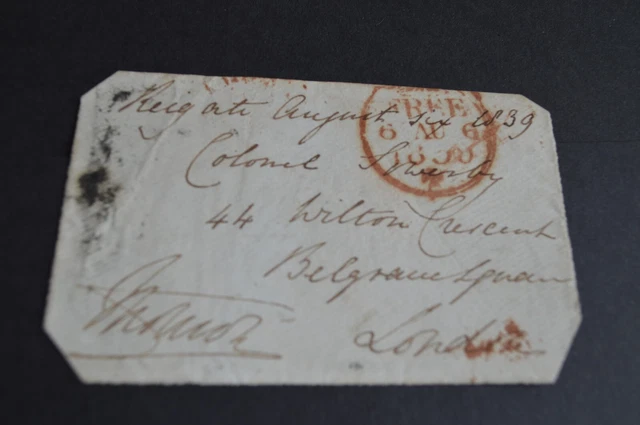 Reigate August six 1839
FREE
6 AU 6
1839
Colonel Sowerby
44 Wilton Crescent
Belgrave Square
London